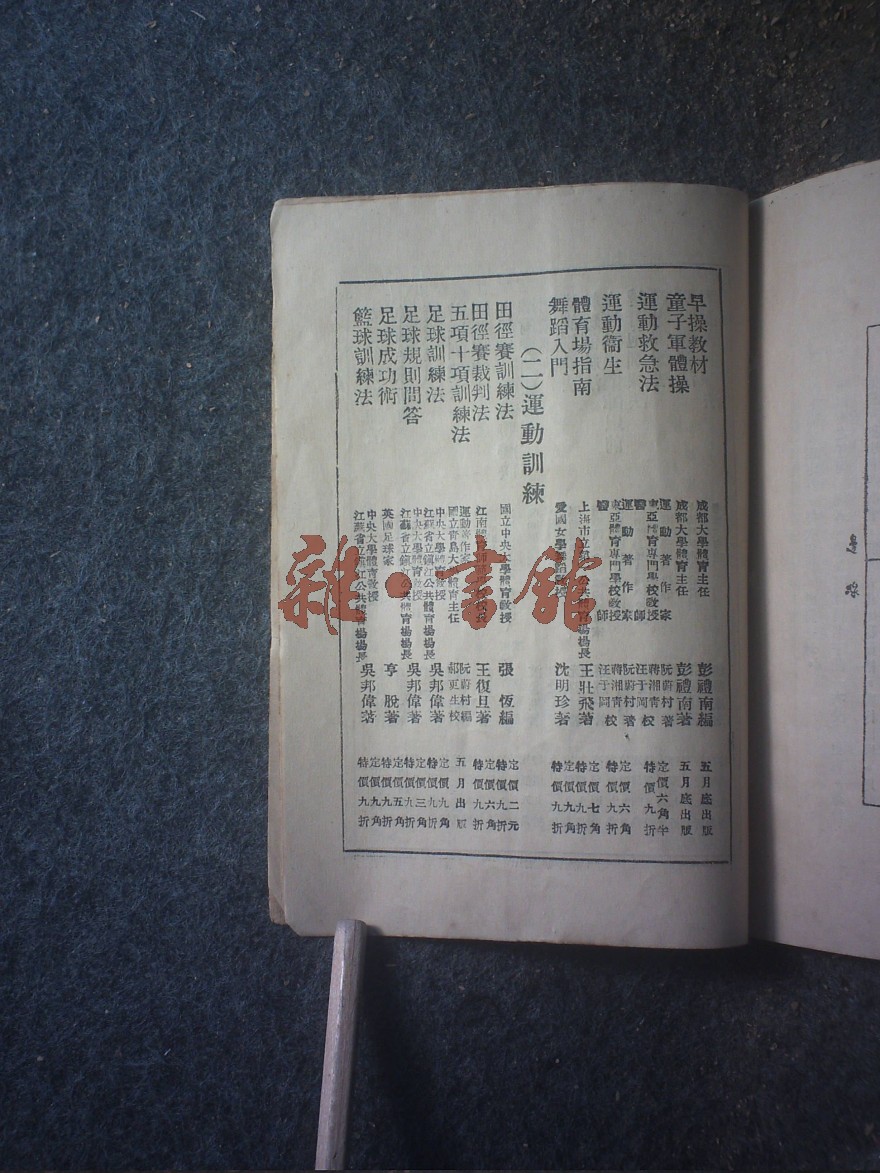 早操教材 成都大學體育主任 彭禮南編 五月底出版
童子軍體操 成都大學體育主任 彭禮南著 五月底出版
運動救急法 運動著作家 阮蔚村著 定價六角半
東亞體育專門學校教授 蔣湘青校 特價九折
醫師 汪于岡校
運動衞生 運動著作家 阮蔚村著 定價六角
東亞體育專門學校教授 蔣湘青校 特價九折
醫師 汪于岡校
體育場指南 上海市立 公共體育場場長 王壯飛著 定價七角 特價九折
舞蹈入門 愛國女學 教授 沈明珍著 定價九角 特價九折
(二)運動訓練
田徑賽訓練法 國立中央大學體育教授 張恆編 定價二元 特價九折
田徑賽裁判法 江南 校長 王復旦著 定價六角 特價九折
五項十項訓練法 運動著作家 阮蔚村編 五月出版
國立青島大學體育主任 郝更生校
足球訓練法 中央大學體育教授 江蘇省立鎮江公共體育場場長 吳邦偉著 定價九角 特價九折
足球規則問答 中央大學體育教授 江蘇省立鎮江公共體育場場長 吳邦偉著 定價三角 特價九折
足球成功術 英國足球家 亨脫著 定價五角 特價九折
籃球訓練法 中央大學體育教授 江蘇省立鎮江公共體育場場長 吳邦偉著 定價九角 特價九折
雜·書館